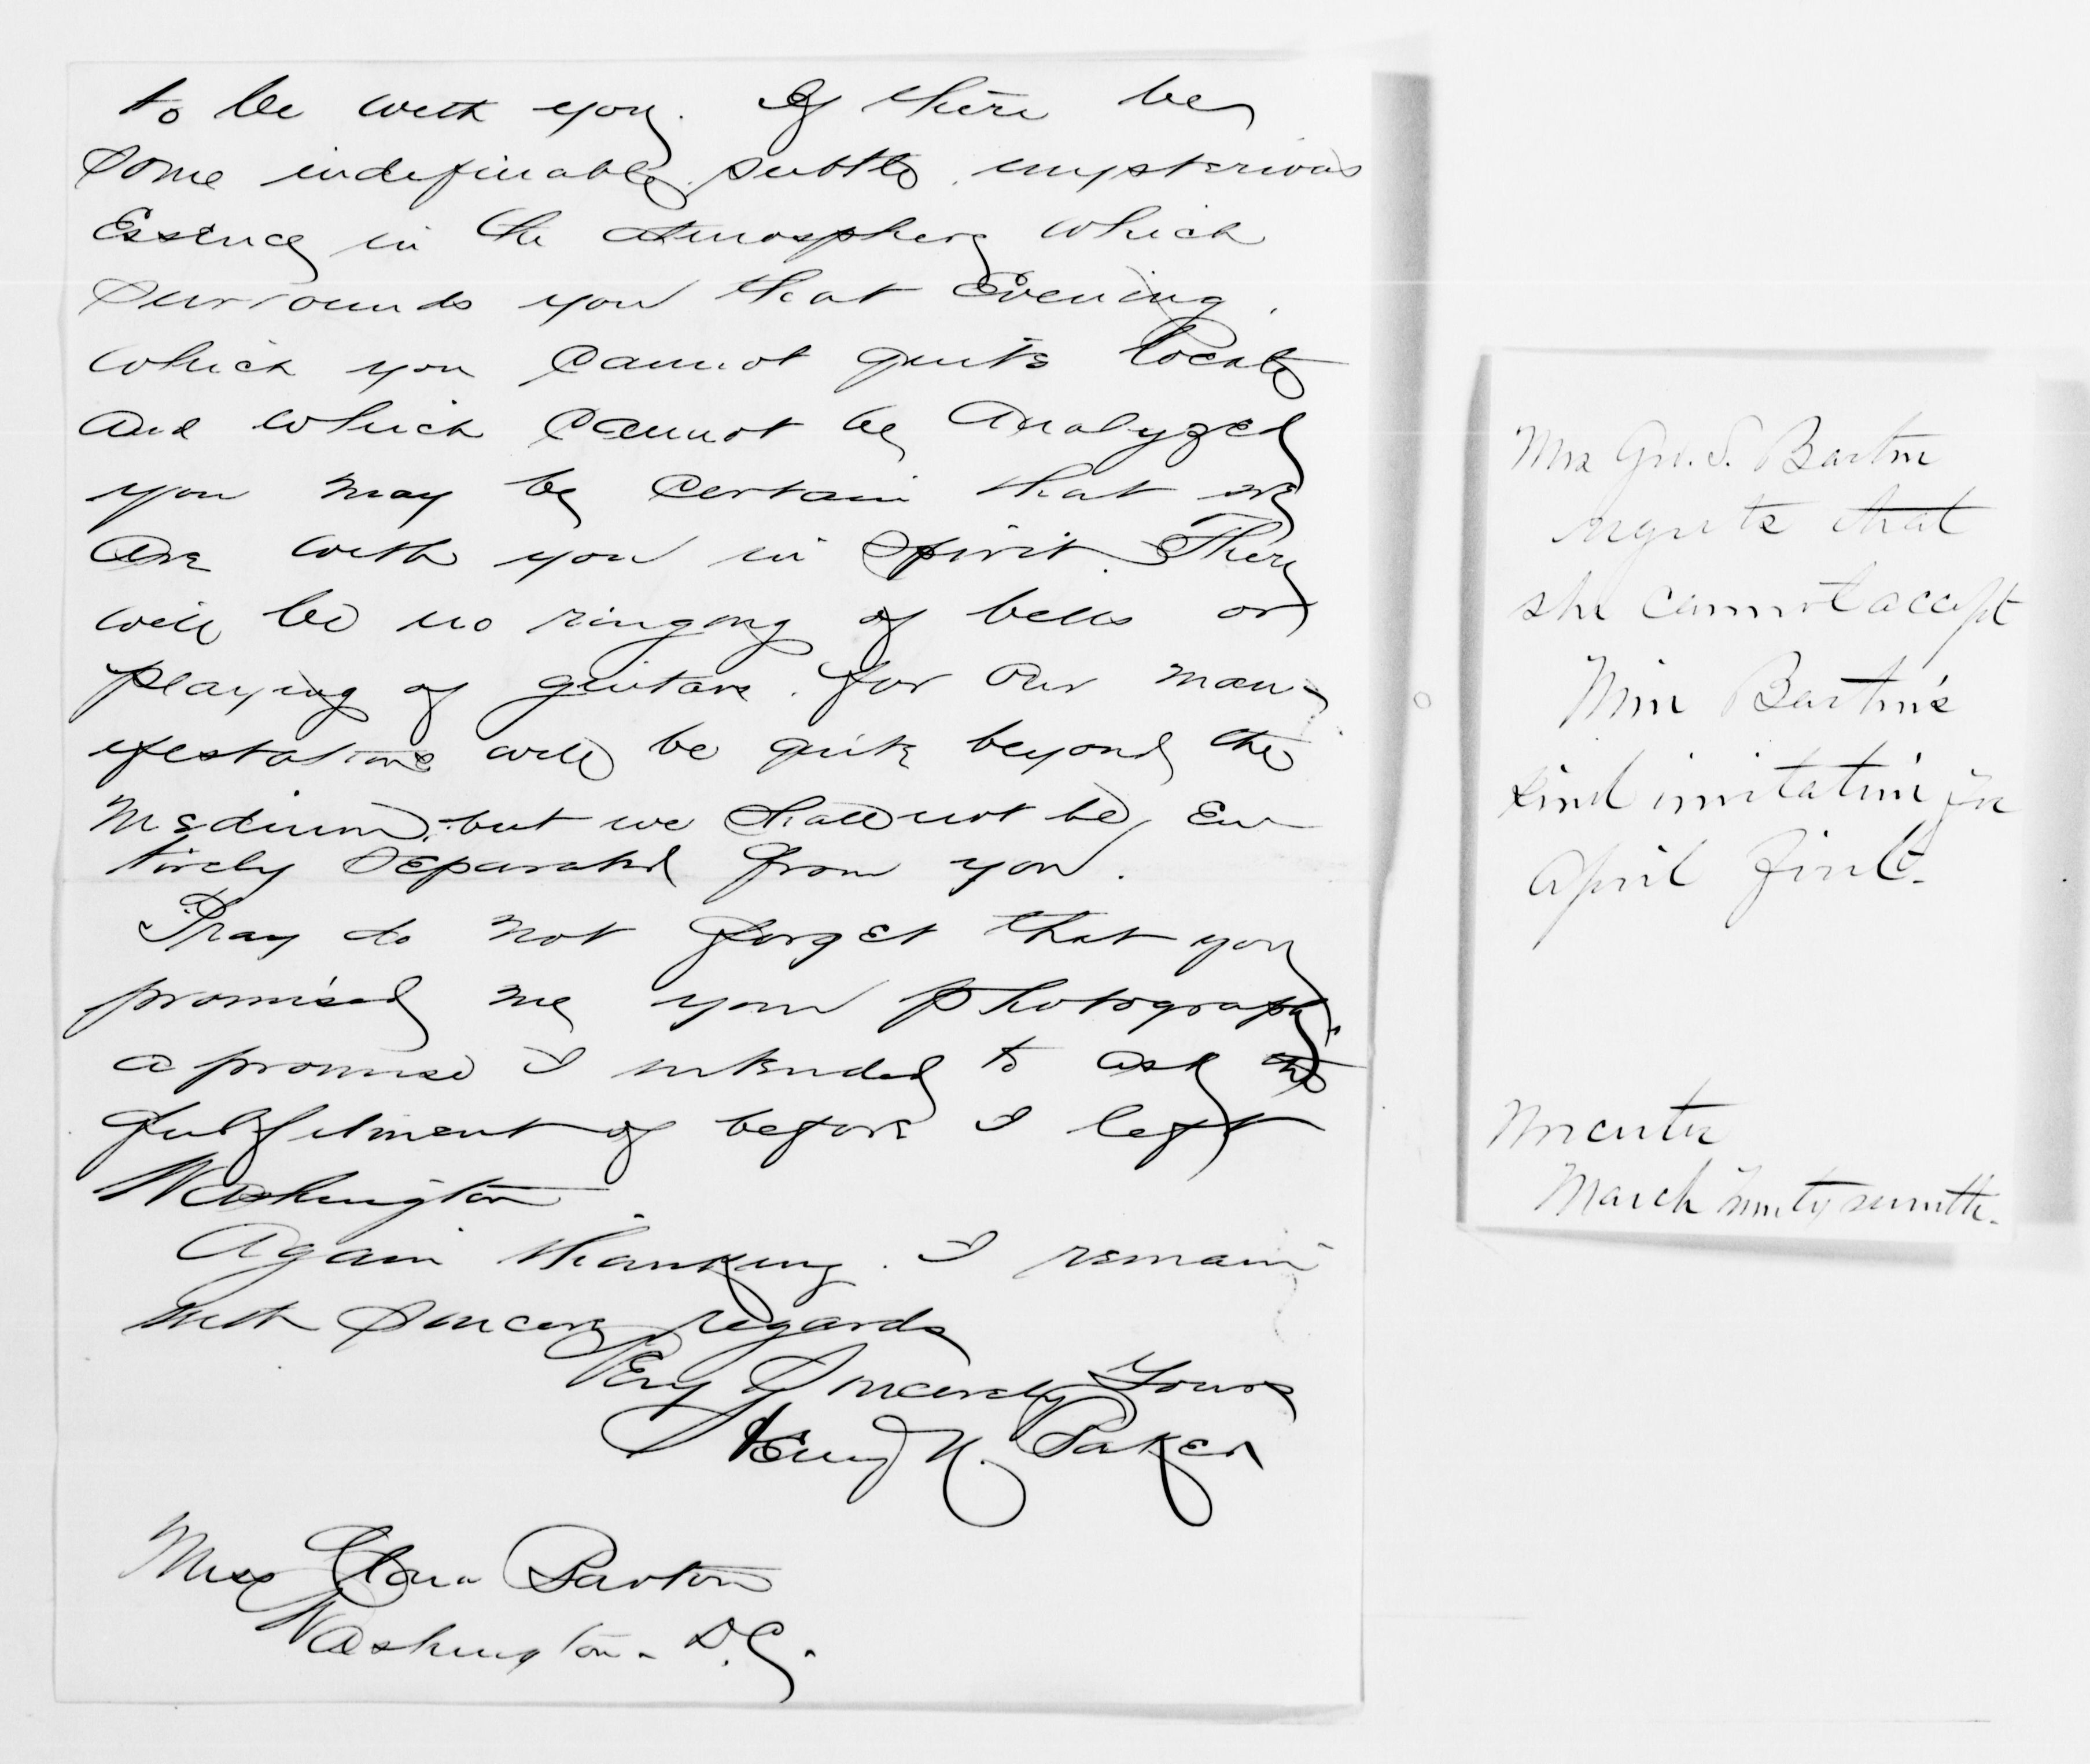 to be with you. If there be
some indefinable, subtle, mysterious
Essence in the Atmosphere which
surrounds you that Evening,
which you cannot quite locate
and which cannot be analyzed
you may be certain that we
are with you in spirit. There
will be no ringing of bells or
playing of guitars. for our man-
ifestations will be quite beyond the
Medium, but we shall not be En-
tirely separated from you.
Pray do not forget that you
promised me your photograph,
a promise I intended to ask the
fulfilment of before I left
Washington.
Again thanking. I remain
with sincere regards
Very Sincerely Yours
Henry N. Baker
Miss Clara Barton
Washington - D.C.
Mrs Geo. S. Barton
regrets that
she cannot accept
Miss Barton's
kind invitation for
April first.
Worcester
March twenty seventh.